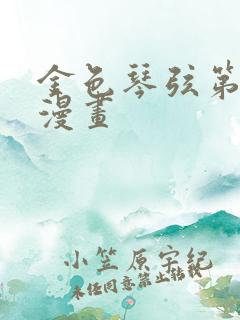 金色琴弦第
漫畫
小笠原宇紀
未经同意禁止转载